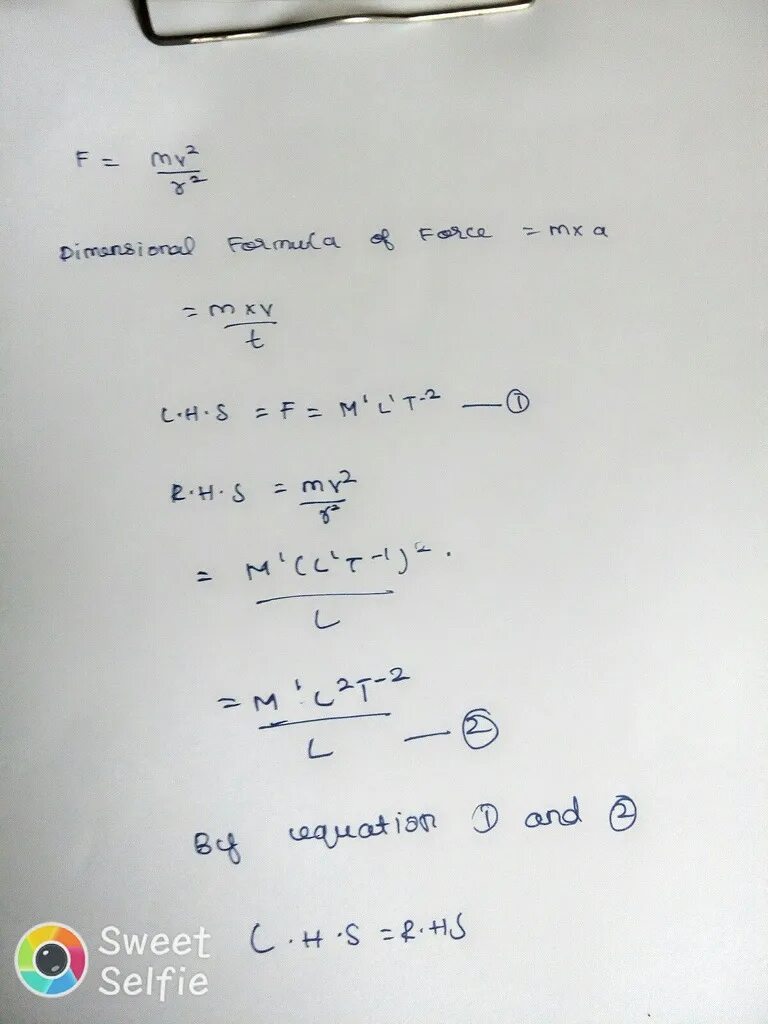 F = mv²/r²
Dimensional Formula of Force = m×a
= m×v/t
L.H.S = F = M¹L¹T⁻² — ①
R.H.S = mv²/r²
= M¹(L¹T⁻¹)²/L
= M¹L²T⁻²/L — ②
By equation ① and ②
L.H.S = R.HS
Sweet
Selfie